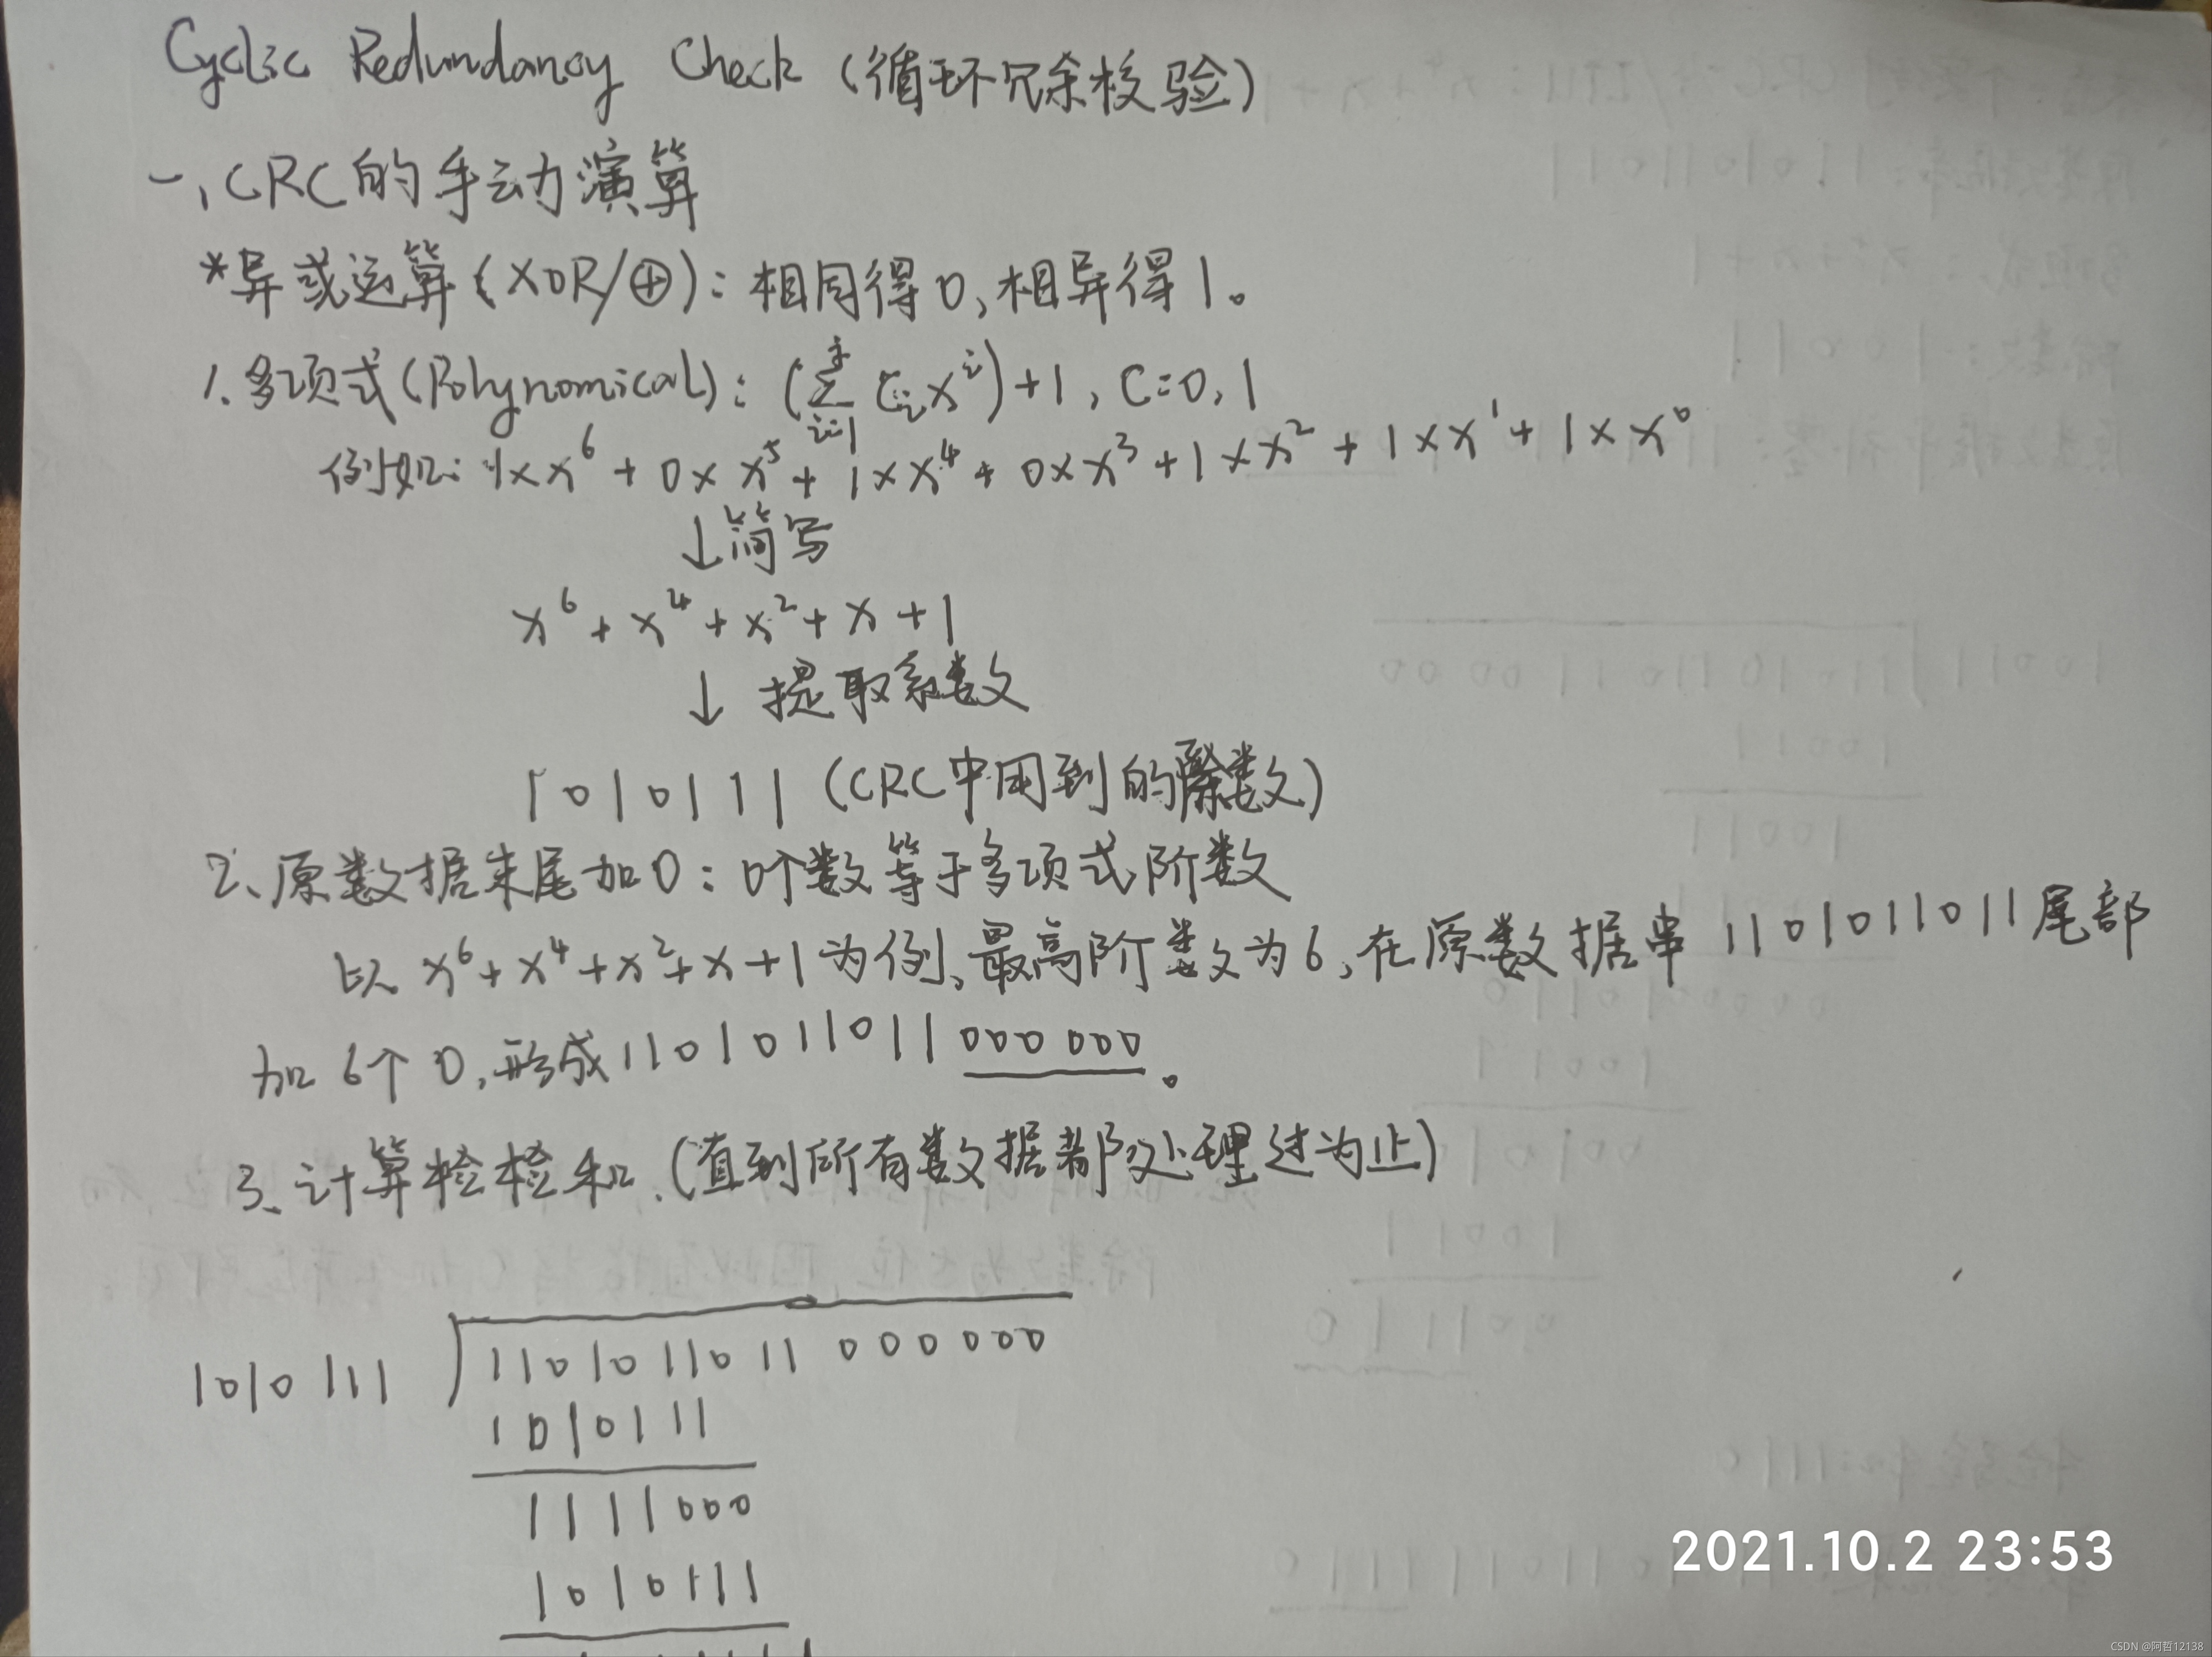 Cyclic Redundancy Check (循环冗余校验)
一、CRC的手动演算
*异或运算(XOR/⊕)：相同得0,相异得1。
1.多项式(Polynomical)：(∑ᵢ₌₁ Cᵢxⁱ)+1, C=0,1
例如: 1×x⁶ + 0×x⁵ + 1×x⁴ + 0×x³ + 1×x² + 1×x¹ + 1×x⁰
↓简写
x⁶+x⁴+x²+x+1
↓ 提取系数
1010111 (CRC中用到的除数)
2、原数据末尾加0：0个数等于多项式阶数
以 x⁶+x⁴+x²+x+1为例,最高阶数为6,在原数据串 1101011011尾部
加6个0,形成1101011011 000 000。
3、计算检检和.(直到所有数据都处理过为止)
1010 111 1101011011 000000
1010111
1111000
1010111
2021.10.2 23:53
CSDN @阿哲12138